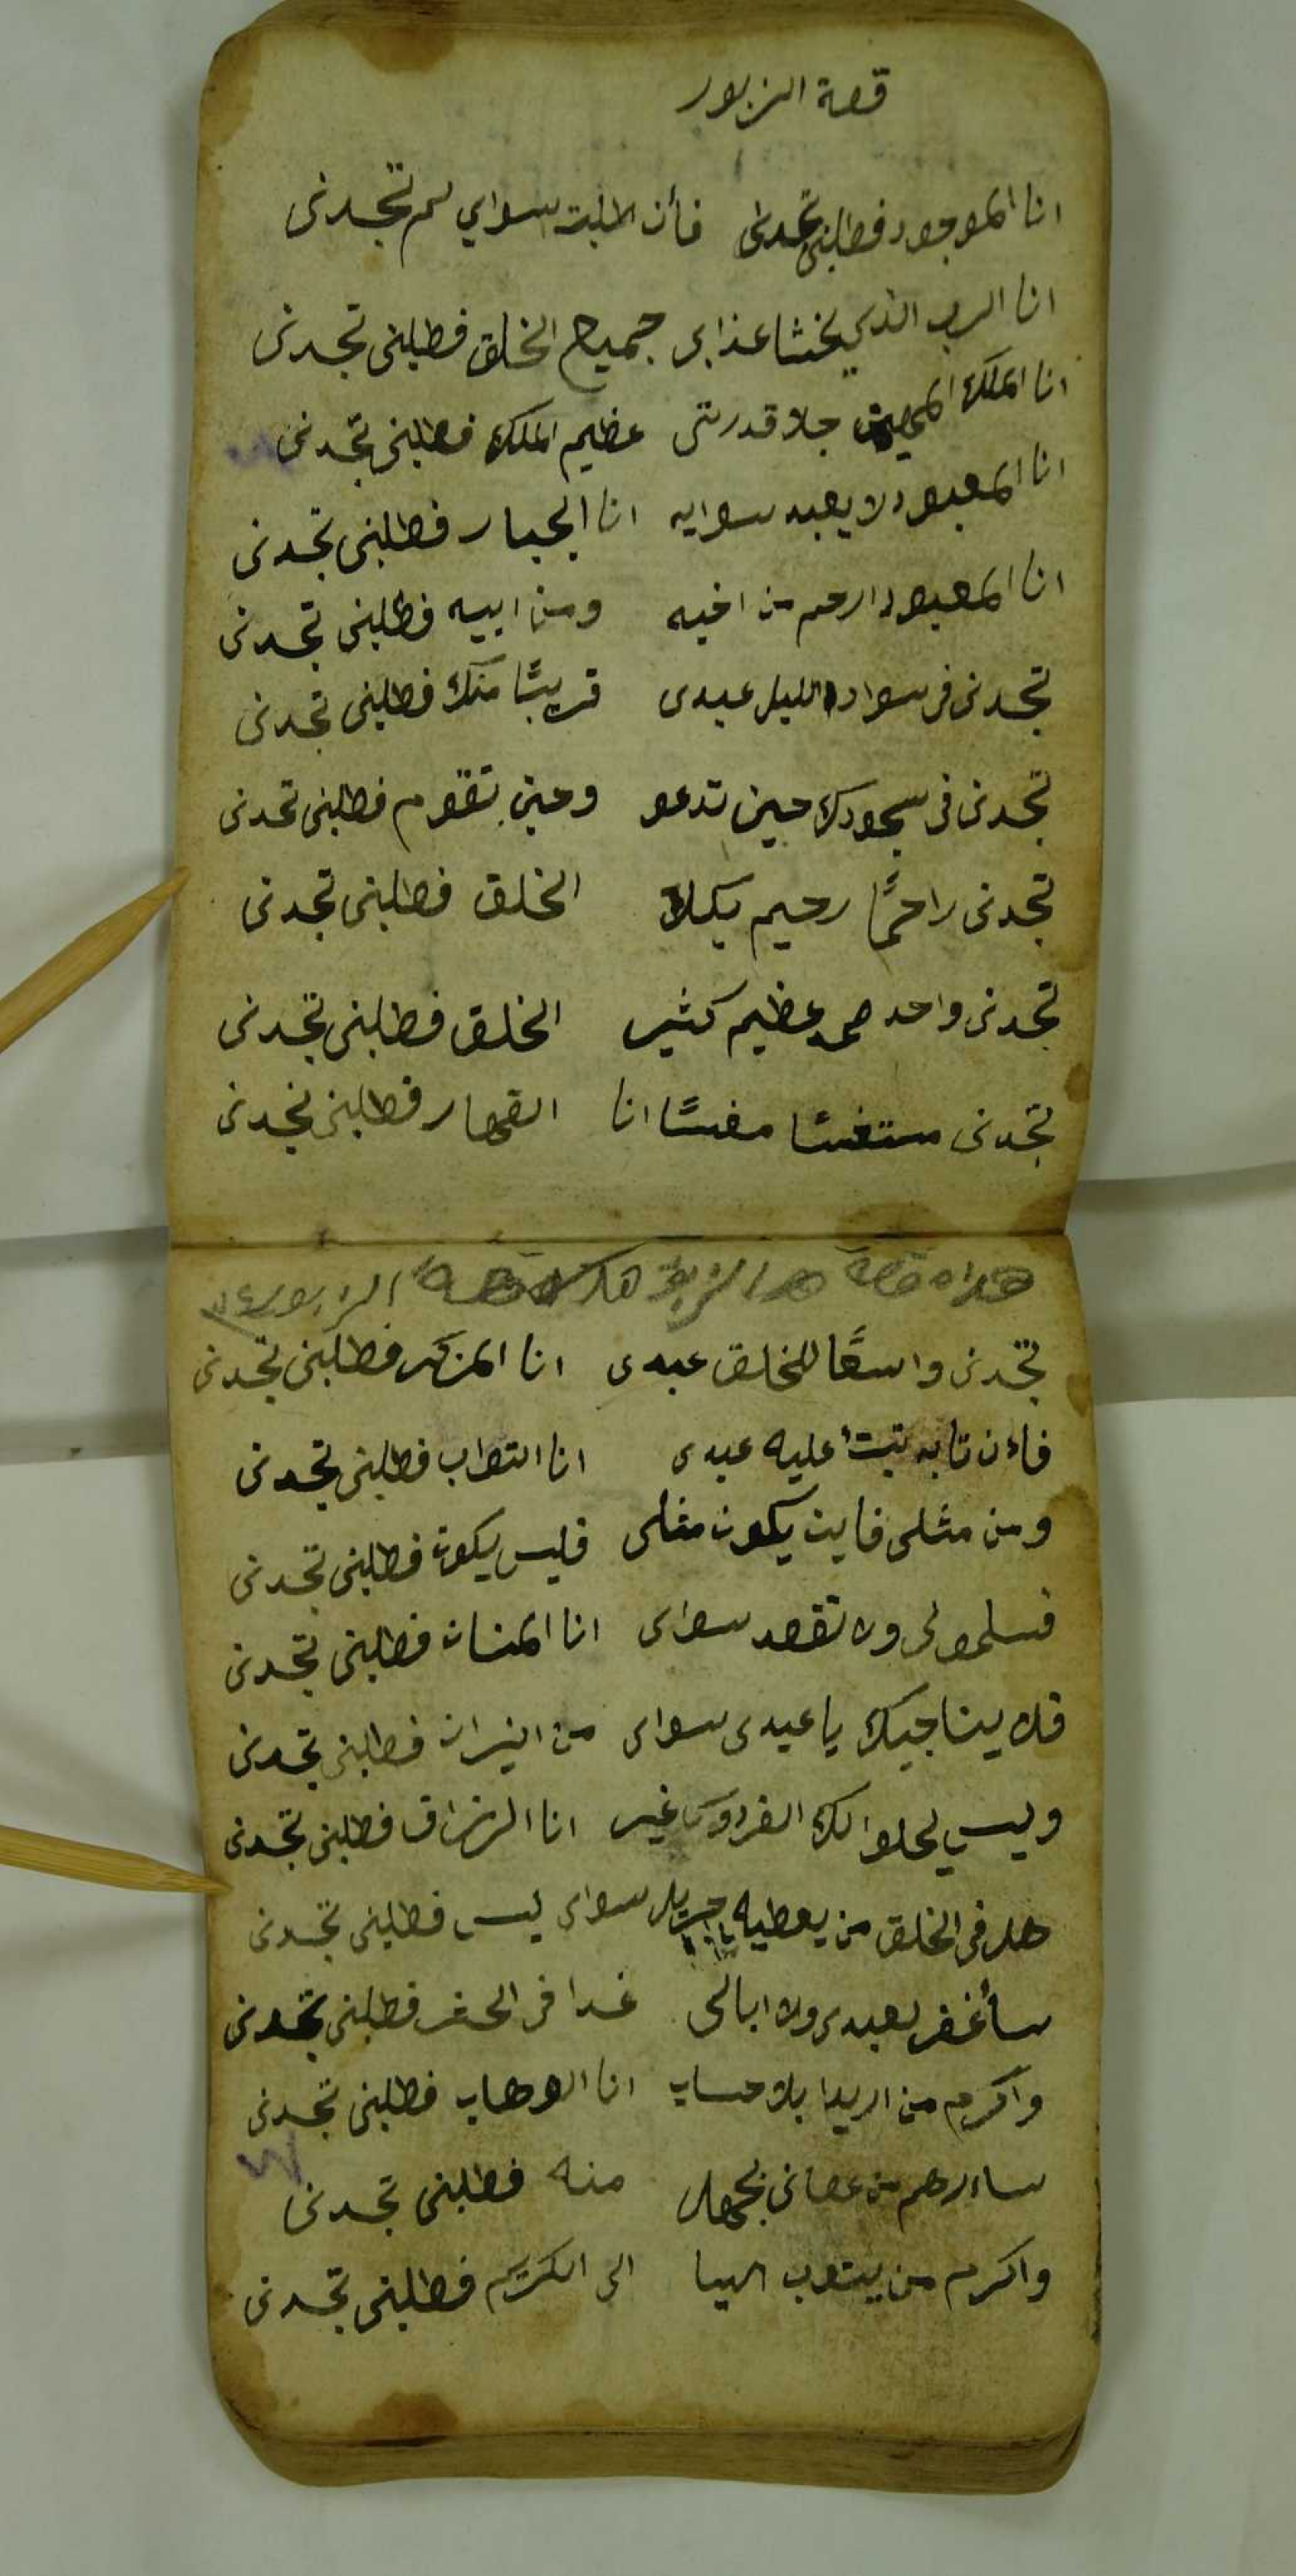 قصة الزبور
انا الموجود فطلبنى تجدنى فأن طلبت سواي لم تجدنى
انا الرب الذي يخشا عذابى جميع الخلق فطلبنى تجدنى
انا الملك المهيمن جلا قدرتى عظيم الملك فطلبنى تجدنى
انا المعبود لا يعبد سوايه انا الجبار فطلبنى تجدنى
انا المعبود ارحم من اخيه ومن ابيه فطلبنى تجدنى
تجدنى فى سواد الليل عبدى قريبًا منك فطلبنى تجدنى
تجدنى فى سجودك حين تدعو وحين تقوم فطلبنى تجدنى
تجدنى راحمًا رحيم بكل الخلق فطلبنى تجدنى
تجدنى واحد صمد عظيم كثير الخلق فطلبنى تجدنى
تجدنى مستغسًا مغسًا انا القهار فطلبنى تجدنى
هذه قصة الزبور
تجدنى واسعًا للخلق عبدى انا المذكر فطلبنى تجدنى
فاءن تابه تبت عليه عبدى انا التواب فطلبنى تجدنى
ومن مثلى فاين يكون مثلى فليس يكون فطلبنى تجدنى
فسلمولى ولا تقصد سواى انا المنان فطلبنى تجدنى
فلا يناجيك يا عبدى سواى من النيران فطلبنى تجدنى
وليس يحلوا لك الفردوس غير انا الرزاق فطلبنى تجدنى
هل فى الخلق من يعطيه سواى ليس فطلبنى تجدنى
سأغفر لعبدى ولا ابالى غدا فى الحشر فطلبنى تجدنى
واكرم من اريدا بلا حساب انا الوهاب فطلبنى تجدنى
ساارحم من عصانى بجهل منه فطلبنى تجدنى
واكرم من يتوب اليا الى الكريم فطلبنى تجدنى